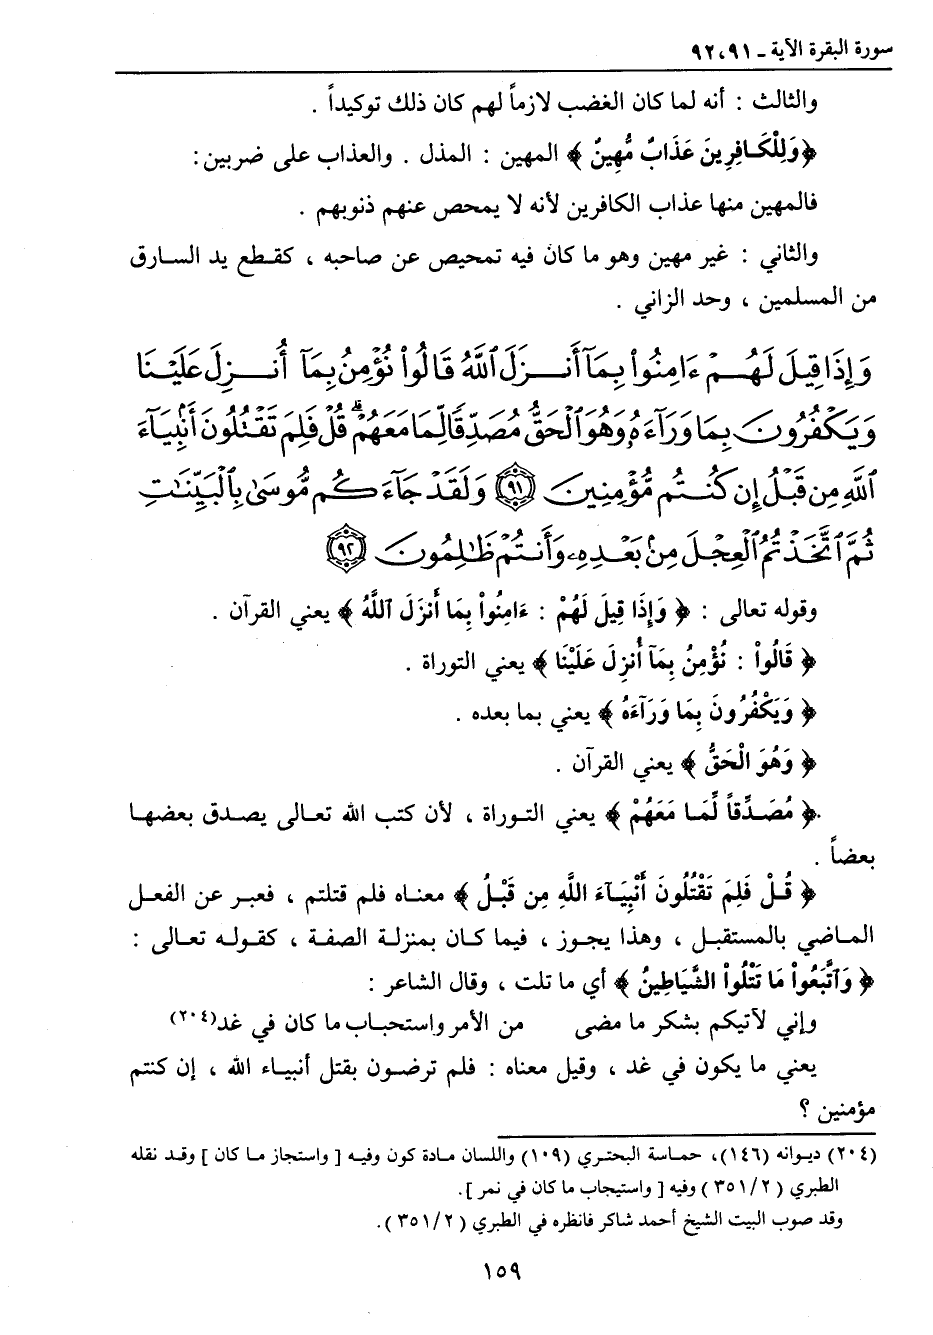 سورة البقرة الآية ـ ٩٢،٩١
والثالث : أنه لما كان الغضب لازماً لهم كان ذلك توكيداً .
﴿ وَلِلْكَافِرِينَ عَذَابٌ مُّهِينٌ ﴾ المهين : المذل . والعذاب على ضربين :
فالمهين منها عذاب الكافرين لأنه لا يمحص عنهم ذنوبهم .
والثاني : غير مهين وهو ما كان فيه تمحيص عن صاحبه ، كقطع يد السارق
من المسلمين ، وحد الزاني .
وَإِذَا قِيلَ لَهُمْ ءَامِنُوا۟ بِمَآ أَنزَلَ ٱللَّهُ قَالُوا۟ نُؤْمِنُ بِمَآ أُنزِلَ عَلَيْنَا
وَيَكْفُرُونَ بِمَا وَرَآءَهُۥ وَهُوَ ٱلْحَقُّ مُصَدِّقًا لِّمَا مَعَهُمْ ۗ قُلْ فَلِمَ تَقْتُلُونَ أَنۢبِيَآءَ
ٱللَّهِ مِن قَبْلُ إِن كُنتُم مُّؤْمِنِينَ ٩١ وَلَقَدْ جَآءَكُم مُّوسَىٰ بِٱلْبَيِّنَٰتِ
ثُمَّ ٱتَّخَذْتُمُ ٱلْعِجْلَ مِنۢ بَعْدِهِۦ وَأَنتُمْ ظَٰلِمُونَ ٩٢
وقوله تعالى : ﴿ وَإِذَا قِيلَ لَهُمْ : ءَامِنُواْ بِمَا أَنزَلَ ٱللَّهُ ﴾ يعني القرآن .
﴿ قَالُواْ : نُؤْمِنُ بِمَآ أُنزِلَ عَلَيْنَا ﴾ يعني التوراة .
﴿ وَيَكْفُرُونَ بِمَا وَرَآءَهُ ﴾ يعني بما بعده .
﴿ وَهُوَ الْحَقُّ ﴾ يعني القرآن .
﴿ مُصَدِّقاً لِّمَا مَعَهُمْ ﴾ يعني التوراة ، لأن كتب الله تعالى يصدق بعضها
بعضاً .
﴿ قُلْ فَلِمَ تَقْتُلُونَ أَنْبِيَآءَ اللَّهِ مِن قَبْلُ ﴾ معناه فلم قتلتم ، فعبر عن الفعل
الماضي بالمستقبل ، وهذا يجوز ، فيما كان بمنزلة الصفة ، كقوله تعالى :
﴿ وَٱتَّبَعُواْ مَا تَتْلُواْ الشَّيَاطِينُ ﴾ أي ما تلت ، وقال الشاعر :
وإني لآتيكم بشكر ما مضى من الأمر واستحباب ما كان في غد(٢٠٤)
يعني ما يكون في غد ، وقيل معناه : فلم ترضون بقتل أنبياء الله ، إن كنتم
مؤمنين ؟
(٢٠٤) ديوانه (١٤٦)، حماسة البحتري (١٠٩) واللسان مادة كون وفيه [ واستجاز ما كان ] وقد نقله
الطبري ( ٣٥١/٢ ) وفيه [ واستيجاب ما كان في نمر ].
وقد صوب البيت الشيخ أحمد شاكر فانظره في الطبري ( ٣٥١/٢ ).
١٥٩